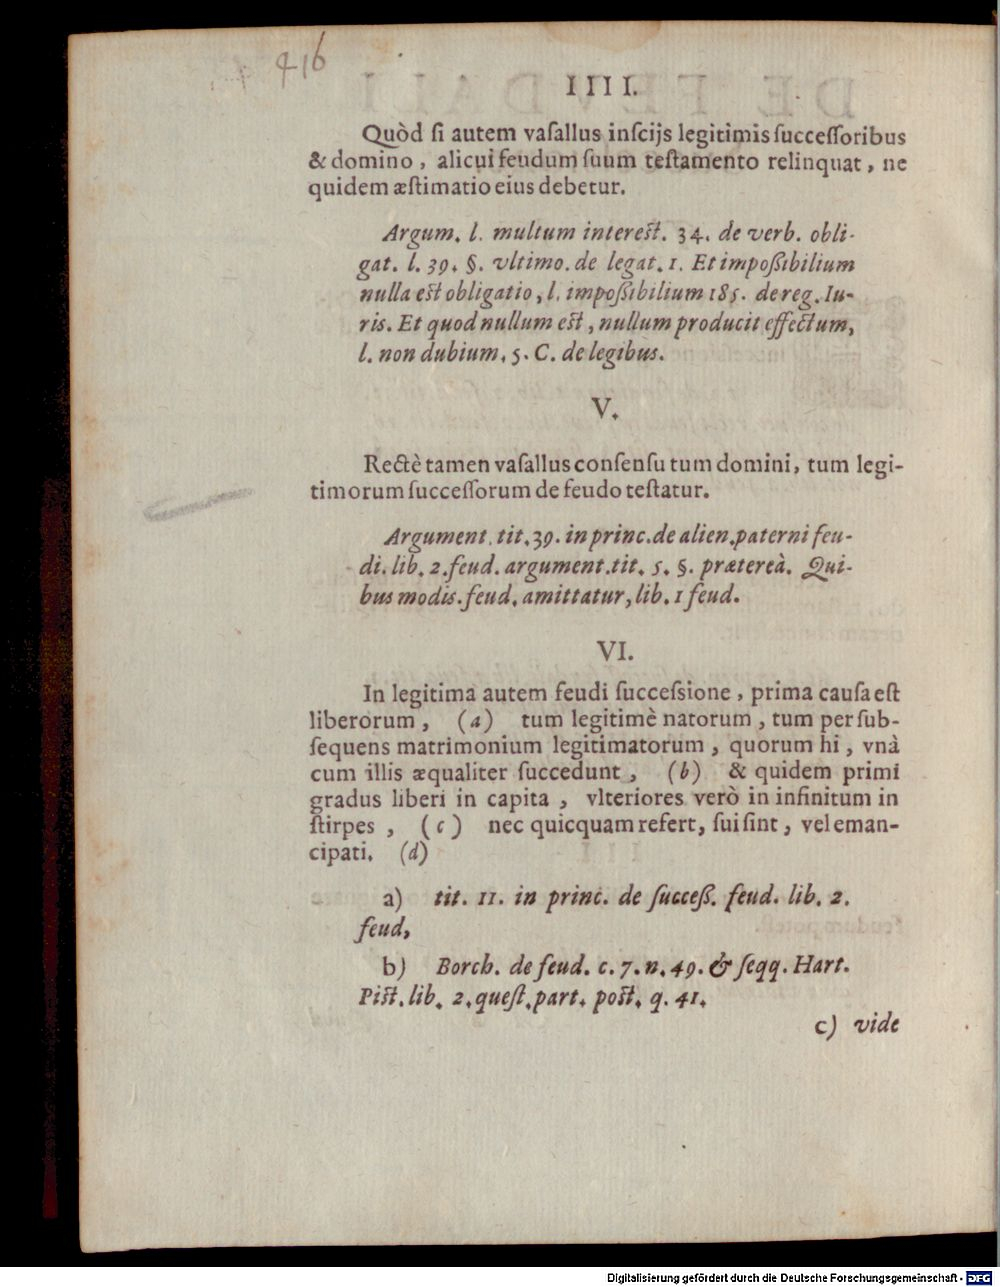 416
IIII.
Quòd ſi autem vaſallus inſcijs legitimis ſucceſſoribus
& domino, alicui feudum ſuum teſtamento relinquat, ne
quidem æſtimatio eius debetur.
Argum. l. multum intereſt. 34. de verb. obli-
gat. l. 39. §. vltimo. de legat. 1. Et impoßibilium
nulla eſt obligatio, l. impoßibilium 185. de reg. Iu-
ris. Et quod nullum eſt, nullum producit effectum,
l. non dubium. 5. C. de legibus.
V.
Rectè tamen vaſallus conſenſu tum domini, tum legi-
timorum ſucceſſorum de feudo teſtatur.
Argument. tit. 39. in princ. de alien. paterni feu-
di. lib. 2. feud. argument. tit. 5. §. prætereà. Qui-
bus modis. feud. amittatur, lib. 1 feud.
VI.
In legitima autem feudi ſucceſsione, prima cauſa eſt
liberorum, (a) tum legitimè natorum, tum per ſub-
ſequens matrimonium legitimatorum, quorum hi, vnà
cum illis æqualiter ſuccedunt, (b) & quidem primi
gradus liberi in capita, vlteriores verò in infinitum in
ſtirpes, (c) nec quicquam refert, ſui ſint, vel eman-
cipati. (d)
a) tit. 11. in princ. de ſucceß. feud. lib. 2.
feud,
b) Borch. de feud. c. 7. n. 49. & ſeqq. Hart.
Piſt. lib. 2. queſt. part. poſt. q. 41.
c) vide
Digitalisierung gefördert durch die Deutsche Forschungsgemeinschaft - DFG